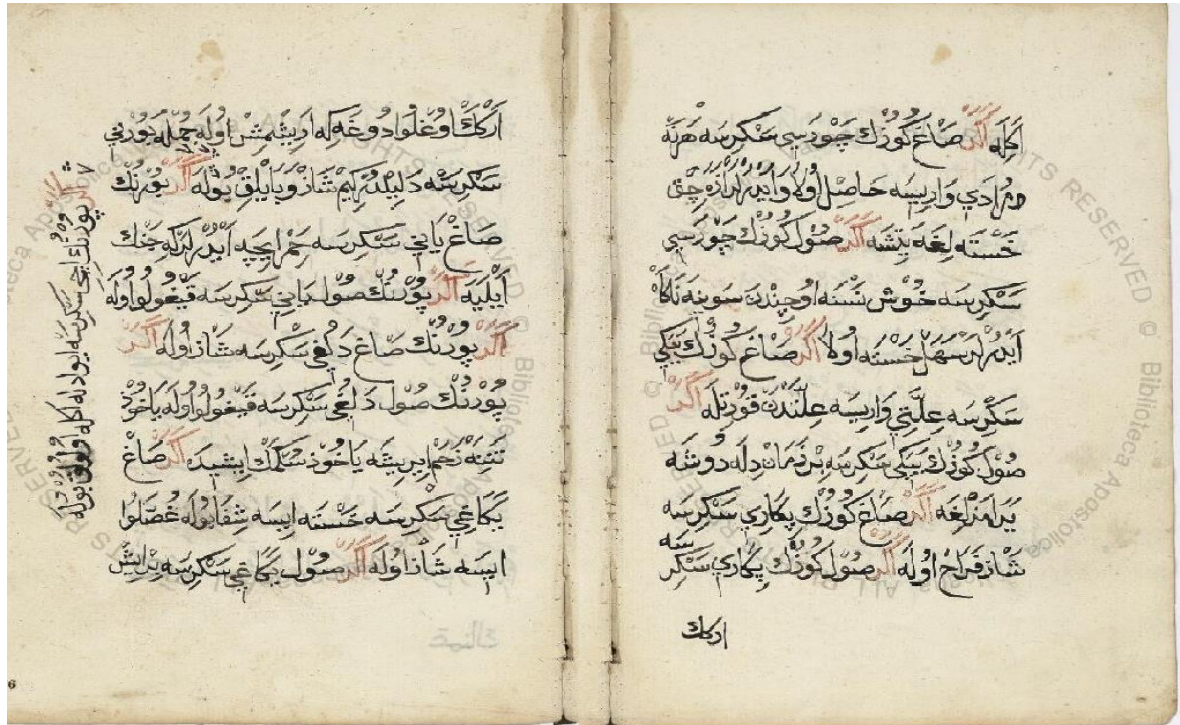 اكله اگر صاغ كوزك چورسي سكرسه هرنه
مرادي واريسه حاصل اولا وايدرلر ارته چق
خسته لغه يتشه اگر صول كوزك چورسي
سكرسه خوش نسنه اوچندن سوينه نكا
ايدرلر سهل خسته اولا اگر صاغ كوزك ببكي
سكرسه علتي واريسه علتندن قورتله اگر
صول كوزك ببكي سكرسه بر زمان دله دوشه
يرامزلغه اگر صاغ كوزك پكاري سكرسه
شاذ فراح اوله اگر صول كوزك پكاري سكر
سه
اركك
اركك اوغلو ادوغه كه اريشمش اوله جمله بورني
سكرسه دليلدر كيم شاذ و بايلق بوله اگر بورنك
صاغ ياني سكرسه خمر ايچيه ايدرلر كه جنك
ايليه اگر بورنك صول ياني سكرسه قيغولو اوله
اگر بورنك صاغ دلغي سكرسه شاذ اوله اگر
بورنك صول دلغي سكرسه قيغولو اوله ياخوذ
تننه زخم ايريشه ياخوذ سكمك ايشيده اگر صاغ
يكاغي سكرسه خسته ايسه شفا بوله غصلوا
ايسه شاذ اوله اگر صول يكاغي سكرسه بر ايش
اگر بورنك ايچي سكرسه ايو اوله اكله اولولق بوله
© Biblioteca Apostolica
ALL RIGHTS RESERVED
6